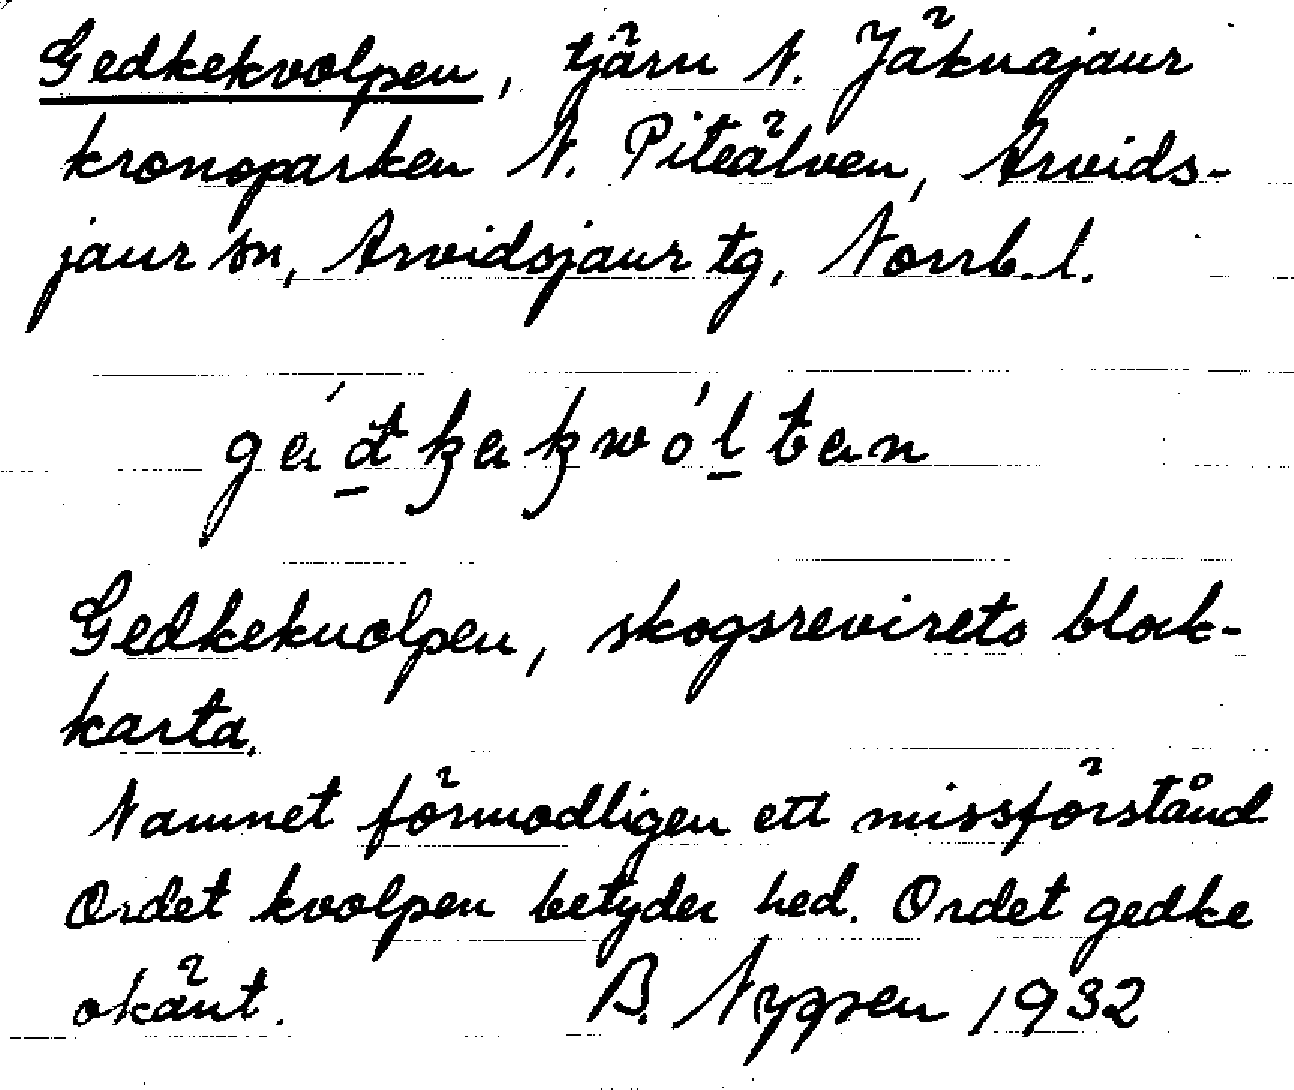 Gedkekvolpen, tjärn N. Jäknajaur
kronoparken N. Piteälven, Arvids-
jaur sn, Arvidsjaur tg, Norrb. l.
Gedkekuolpen, skogsrevirets block-
karta.
Namnet förmodligen ett missförstånd
Ordet kvolpen betyder hed. Ordet gedke
okänt. B. Nygren 1932